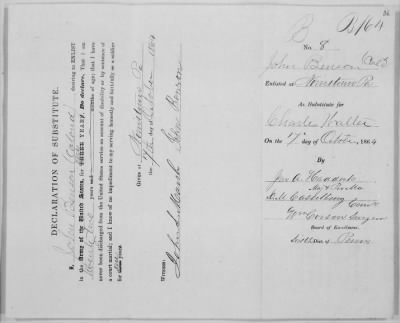 36
B
B164
No. 8
John Benson (Cold)
Enlisted at Norristown Pa
As Substitute for
Charles Waller
On the 7th day of October, 1864
By
Jno A.
Wm Corson Surgeon
Board of Enrollment.
Sixth Dist. of Penna
DECLARATION OF SUBSTITUTE.
I, John Benson (Colored) desiring to ENLIST
in the Army of the United States, for THREE YEARS, Do declare, That I am
Twenty five years and months of age; that I have
never been discharged from the United States service on account of disability or by sentence of
a court martial; and I know of no impediment to my serving honestly and faithfully as a soldier
for one years.
Given at Norristown Pa
the 7th day of October 1864
John Benson
Witness: